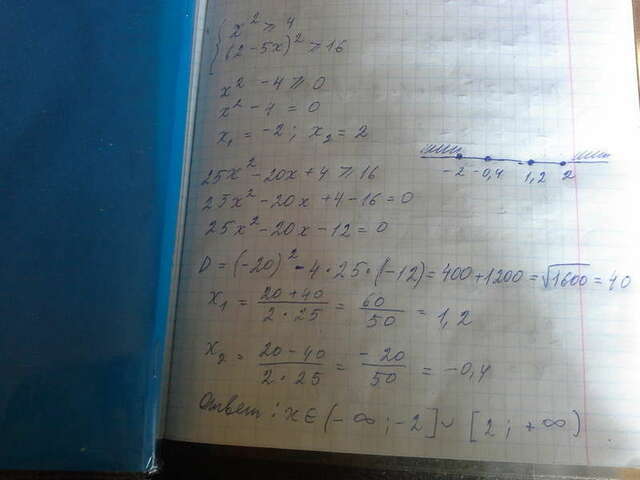 x² ≥ 4
(2-5x)² ≥ 16
x² - 4 ≥ 0
x² - 4 = 0
x₁ = -2; x₂ = 2
-2 -0,4 1,2 2
25x² - 20x + 4 ≥ 16
25x² - 20x + 4 - 16 = 0
25x² - 20x - 12 = 0
D = (-20)² - 4 · 25 · (-12) = 400 + 1200 = √1600 = 40
x₁ = (20 + 40)/(2 · 25) = 60/50 = 1,2
x₂ = (20 - 40)/(2 · 25) = -20/50 = -0,4
Ответ: x ∈ (-∞; -2] ∪ [2; +∞)